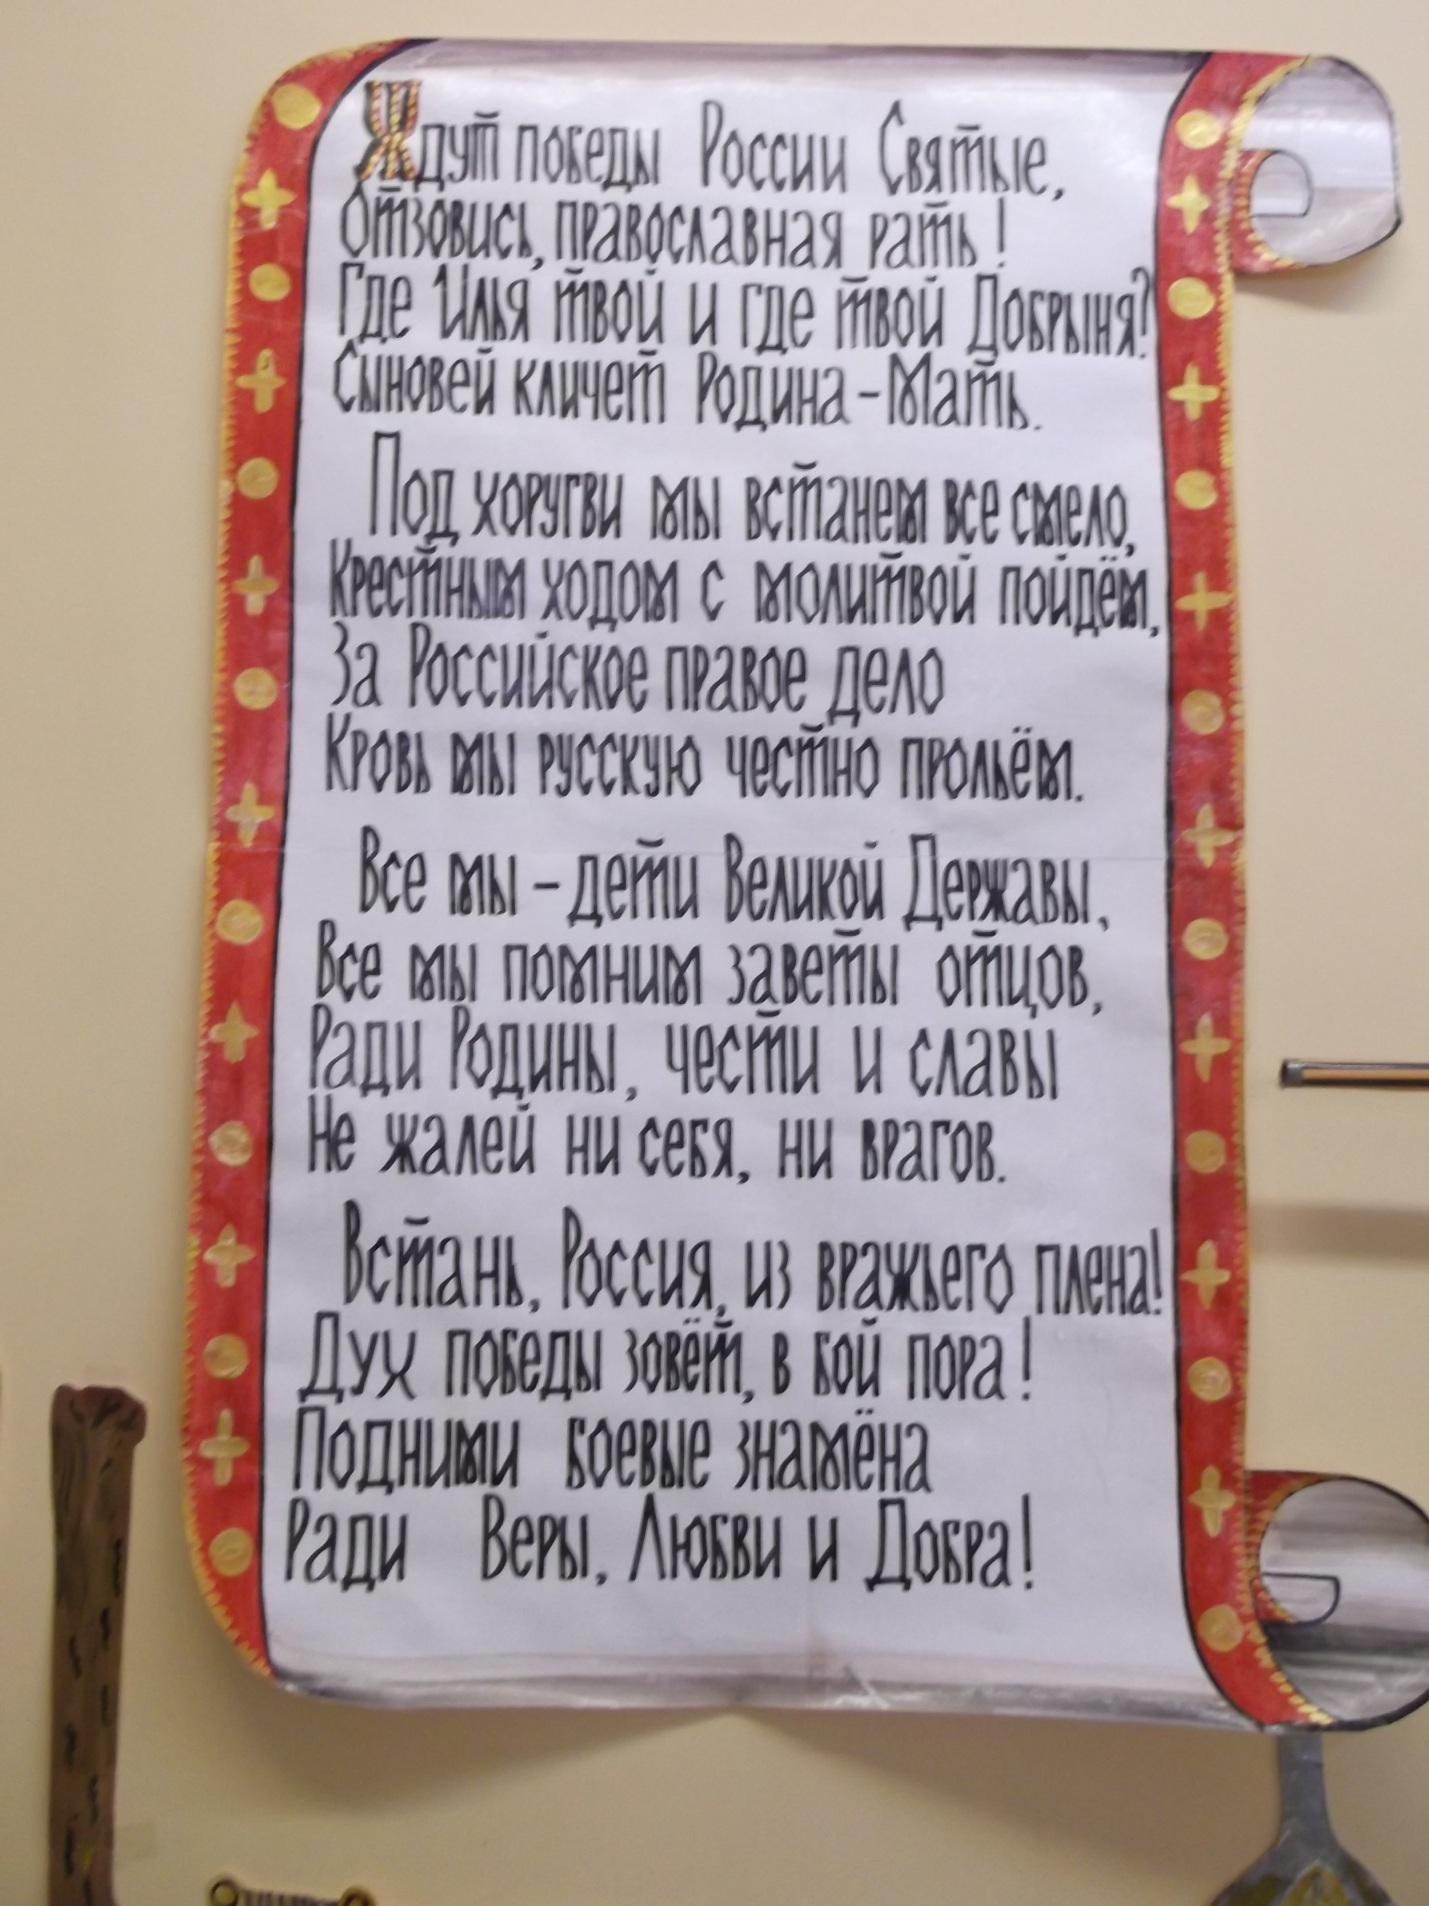 Ждут победы России Святые,
Отзовись, православная рать!
Где Илья твой и где твой Добрыня?
Сыновей кличет Родина-Мать.
Под хоругви мы встанем все смело,
Крестным ходом с молитвой пойдём,
За Российское правое дело
Кровь мы русскую честно прольём.
Все мы – дети Великой Державы,
Все мы помним заветы отцов,
Ради Родины, чести и славы
Не жалей ни себя, ни врагов.
Встань, Россия, из вражьего плена!
Дух победы зовёт, в бой пора!
Подними боевые знамёна
Ради Веры, Любви и Добра!